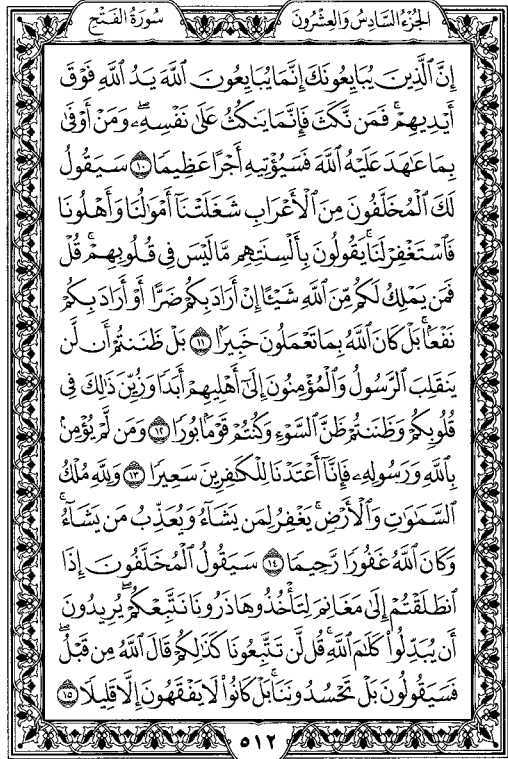 الجُزْءُ السَّادِسُ وَالعِشْرُونَ
سُورَةُ الفَتْح
إِنَّ ٱلَّذِينَ يُبَايِعُونَكَ إِنَّمَا يُبَايِعُونَ ٱللَّهَ يَدُ ٱللَّهِ فَوْقَ
أَيْدِيهِمْۚ فَمَن نَّكَثَ فَإِنَّمَا يَنكُثُ عَلَىٰ نَفْسِهِۦۖ وَمَنْ أَوْفَىٰ
بِمَا عَٰهَدَ عَلَيْهُ ٱللَّهَ فَسَيُؤْتِيهِ أَجْرًا عَظِيمًا ١٠ سَيَقُولُ
لَكَ ٱلْمُخَلَّفُونَ مِنَ ٱلْأَعْرَابِ شَغَلَتْنَآ أَمْوَٰلُنَا وَأَهْلُونَا
فَٱسْتَغْفِرْ لَنَاۚ يَقُولُونَ بِأَلْسِنَتِهِم مَّا لَيْسَ فِي قُلُوبِهِمْۚ قُلْ
فَمَن يَمْلِكُ لَكُم مِّنَ ٱللَّهِ شَيْـًٔا إِنْ أَرَادَ بِكُمْ ضَرًّا أَوْ أَرَادَ بِكُمْ
نَفْعَۢاۚ بَلْ كَانَ ٱللَّهُ بِمَا تَعْمَلُونَ خَبِيرًۢا ١١ بَلْ ظَنَنتُمْ أَن لَّن
يَنقَلِبَ ٱلرَّسُولُ وَٱلْمُؤْمِنُونَ إِلَىٰٓ أَهْلِيهِمْ أَبَدًا وَزُيِّنَ ذَٰلِكَ فِي
قُلُوبِكُمْ وَظَنَنتُمْ ظَنَّ ٱلسَّوْءِ وَكُنتُمْ قَوْمًۢا بُورًا ١٢ وَمَن لَّمْ يُؤْمِنۢ
بِٱللَّهِ وَرَسُولِهِۦ فَإِنَّآ أَعْتَدْنَا لِلْكَٰفِرِينَ سَعِيرًا ١٣ وَلِلَّهِ مُلْكُ
ٱلسَّمَٰوَٰتِ وَٱلْأَرْضِۚ يَغْفِرُ لِمَن يَشَآءُ وَيُعَذِّبُ مَن يَشَآءُۚ
وَكَانَ ٱللَّهُ غَفُورًا رَّحِيمًا ١٤ سَيَقُولُ ٱلْمُخَلَّفُونَ إِذَا
ٱنطَلَقْتُمْ إِلَىٰ مَغَانِمَ لِتَأْخُذُوهَا ذَرُونَا نَتَّبِعْكُمْۖ يُرِيدُونَ
أَن يُبَدِّلُوا۟ كَلَٰمَ ٱللَّهِۚ قُل لَّن تَتَّبِعُونَا كَذَٰلِكُمْ قَالَ ٱللَّهُ مِن قَبْلُۖ
فَسَيَقُولُونَ بَلْ تَحْسُدُونَنَاۚ بَلْ كَانُوا۟ لَا يَفْقَهُونَ إِلَّا قَلِيلًا ١٥
٥١٢